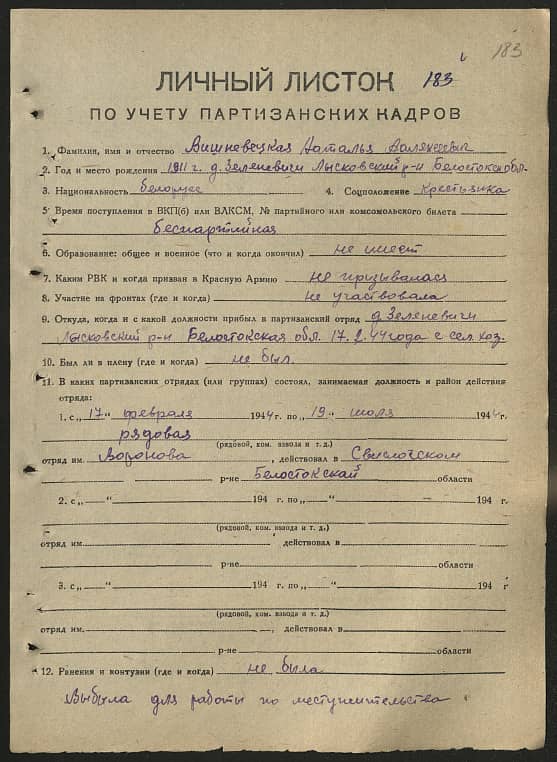 183
ЛИЧНЫЙ ЛИСТОК 183
ПО УЧЕТУ ПАРТИЗАНСКИХ КАДРОВ
1. Фамилия, имя и отчество Вишневецкая Наталья
2. Год и место рождения 1911 г. д. Зеленевичи Лысковский р-н Белостокс. обл.
3. Национальность белорусс 4. Соцположение крестьянка
5. Время поступления в ВКП(б) или ВЛКСМ, № партийного или комсомольского билета
беспартийная
6. Образование: общее и военное (что и когда окончил) не имеет
7. Каким РВК и когда призван в Красную Армию не призывалась
8. Участие на фронтах (где и когда) не участвовала
9. Откуда, когда и с какой должности прибыл в партизанский отряд д. Зеленевичи
Лысковский р-н Белостокская обл. 17.2.44 года с сел. хоз.
10. Был ли в плену (где и когда) не был.
11. В каких партизанских отрядах (или группах) состоял, занимаемая должность и район действия
отряда:
1. с „17“ февраля 1944 г. по „19“ июля 1944 г.
рядовая
(рядовой, ком. взвода и т. д.)
отряд им. Воронова, действовал в Свислочском
р-не Белостокской области
2. с „ “ 194 г. по „ “ 194 г.
(рядовой, ком. взвода и т. д.)
отряд им. действовал в
р-не области
3. с „ “ 194 г. по „ “ 194 г.
(рядовой, ком. взвода и т. д.)
отряд им. , действовал в
р-не области
12. Ранения и контузии (где и когда) не была
Выбыла для работы по местужительства